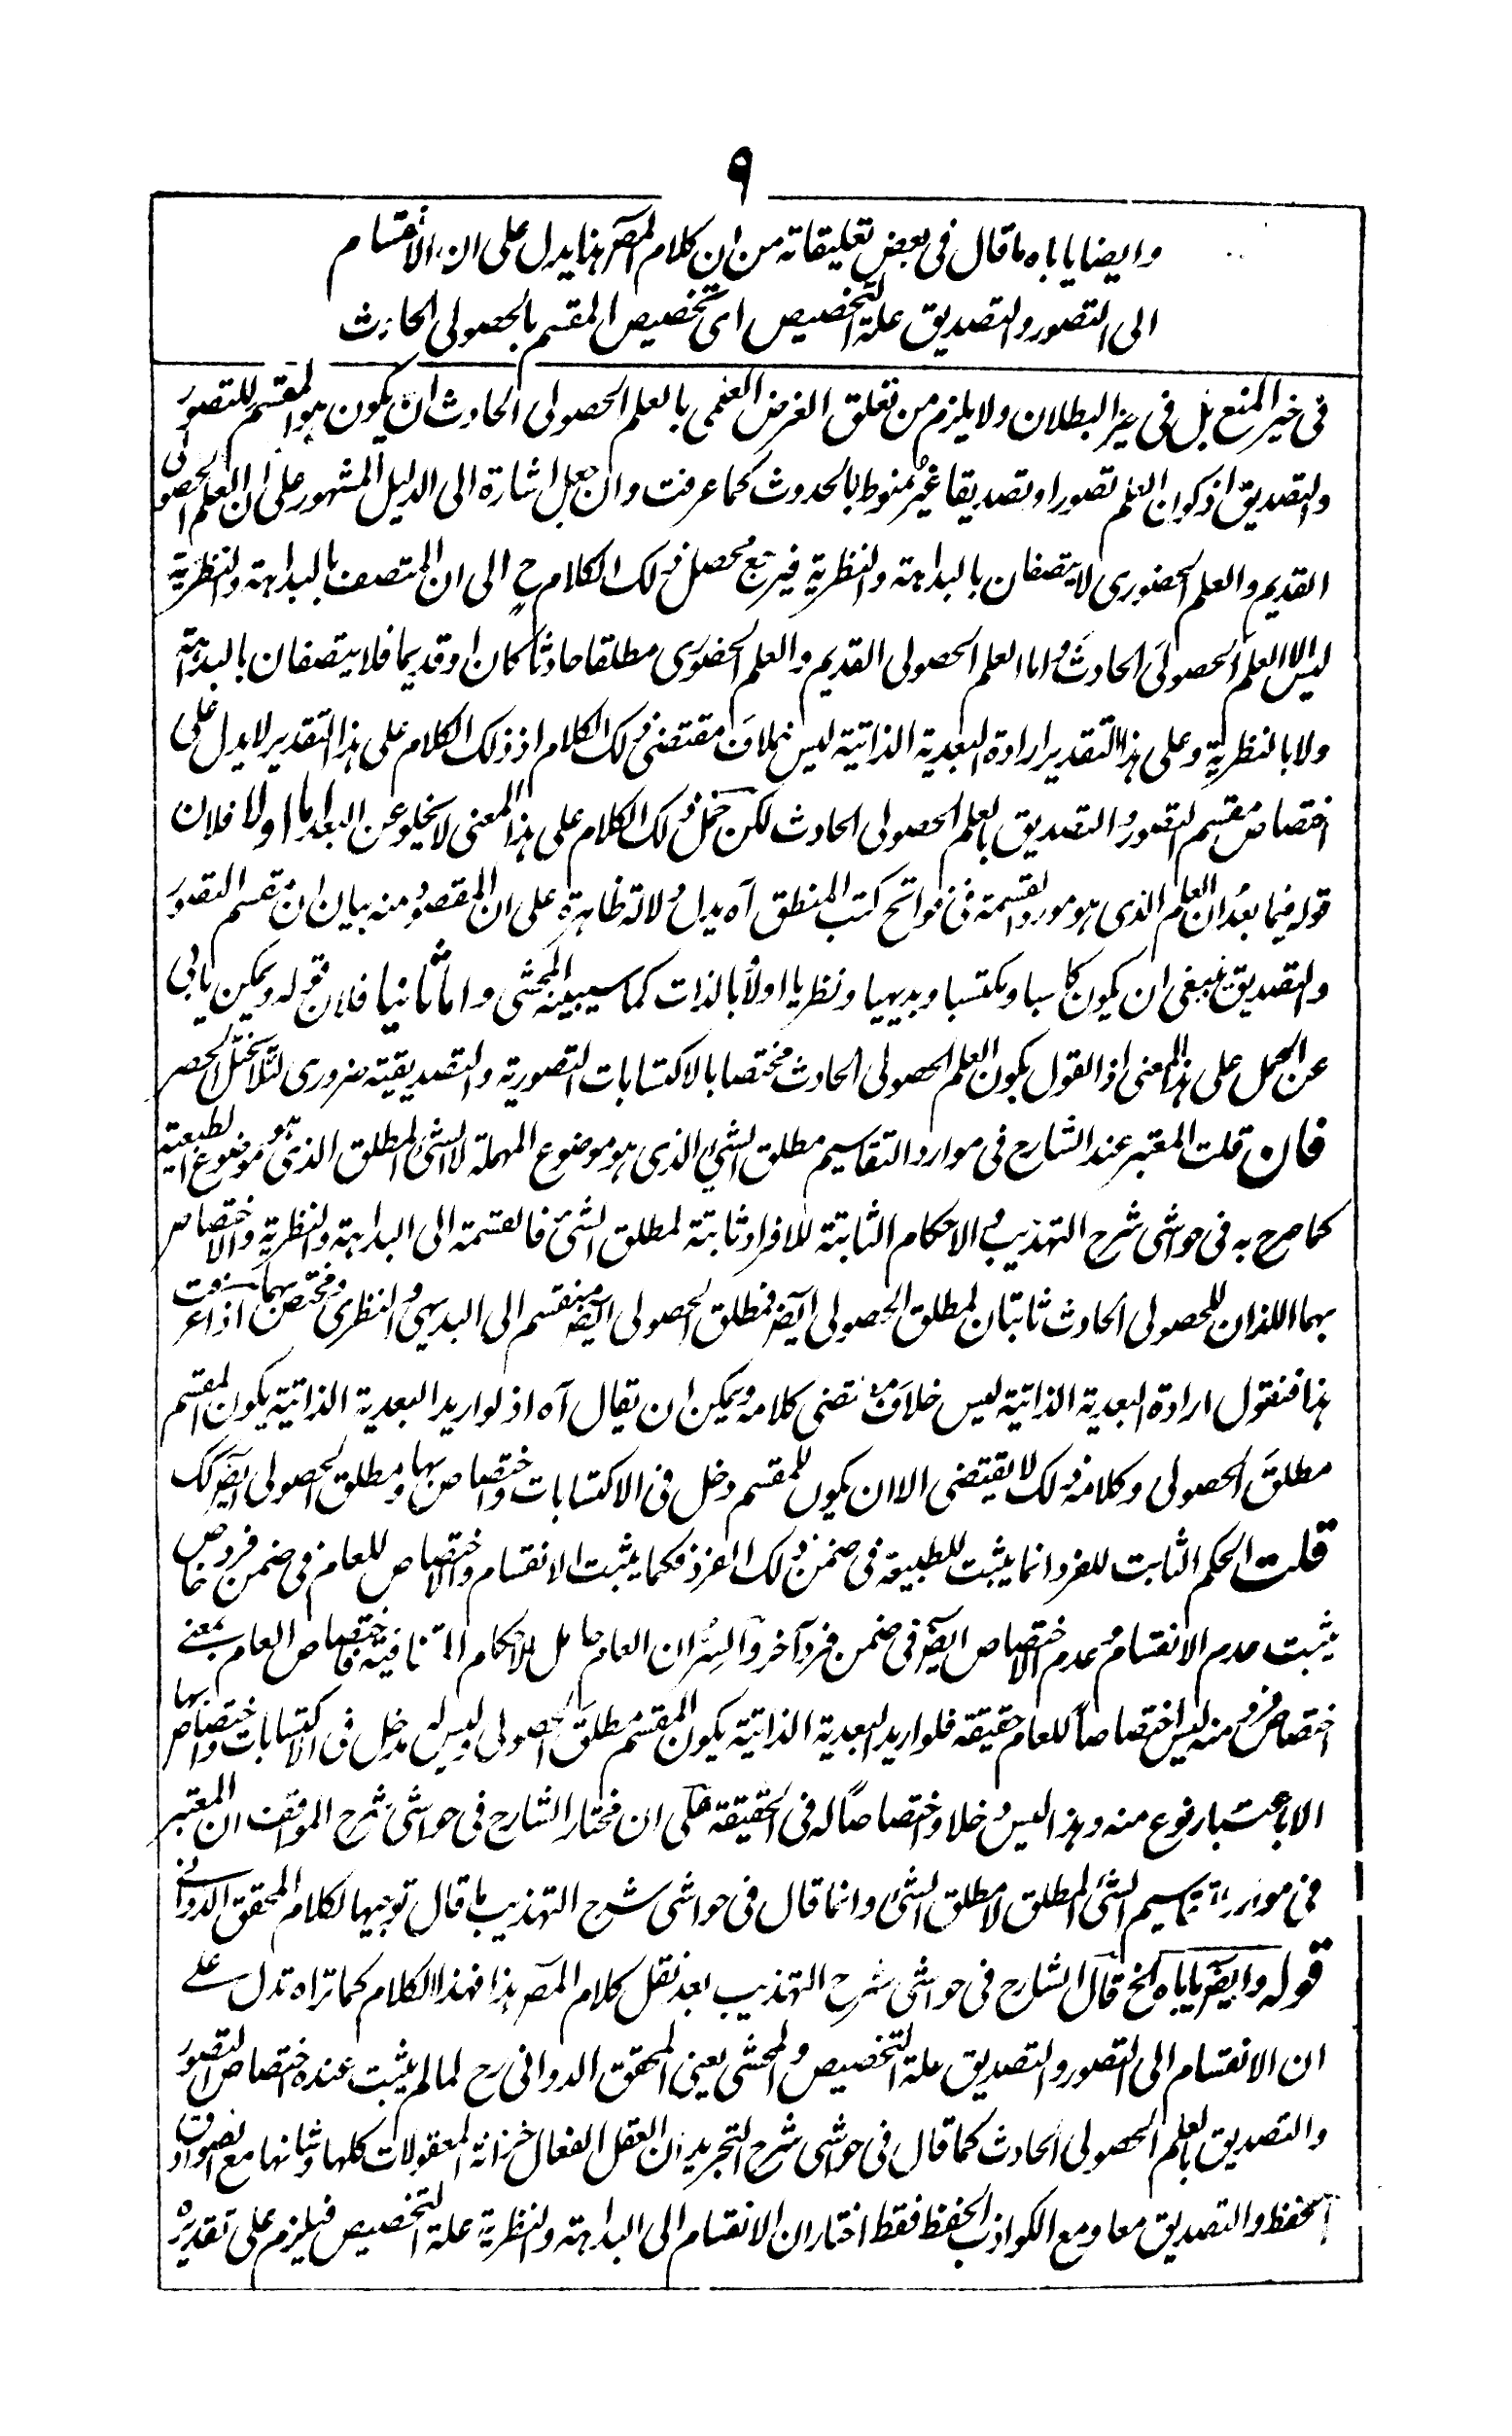 ٩
وايضا ياباه ما قال فى بعض تعليقاته من ان كلام المصـ هذا يدل على ان الانقسام
الى التصور والتصديق علة التخصيص اى تخصيص المقسم بالحصولى الحادث
فى خير المنع بل فى حيز البطلان ولا يلزم من تعلق الغرض العلمى بالعلم الحصولى الحادث ان يكون هو المقسم للتصور
والتصديق اذ كون العلم تصورا وتصديقا غير منوط بالحدوث كما عرفت وان جعل اشارة الى الدليل المشهور على ان العلم الحصولى
القديم والعلم الحضورى لا يتصفان بالبداهة والنظرية فيرجع محصل ذلك الكلام ح الى ان المتصف بالبداهة والنظرية
ليس الا العلم الحصولى الحادث واما العلم الحصولى القديم والعلم الحضورى مطلقا حادثا كان او قديما فلا يتصفان بالبداهة
ولا بالنظرية وعلى هذا التقدير ارادة البعدية الذاتية ليس خلاف مقتضى ذلك الكلام اذ ذلك الكلام على هذا التقدير لا يدل على
اختصاص مقسم التصور والتصديق بالعلم الحصولى الحادث لكن حمل ذلك الكلام على هذا المعنى لا يخلو عن البعد اما اولا فلان
قوله فيما بعد ان العلم الذى هو مورد القسمة فى فواتح كتب المنطق آه يدل دلالة ظاهرة على ان المقصود منه بيان ان مقسم التصور
والتصديق ينبغى ان يكون كاسبا ومكتسبا وبديهيا ونظريا اولا بالذات كما سيبينه المحشى واما ثانيا فلان قوله ويمكن يابى
عن الحمل على هذا المعنى اذ القول بكون العلم الحصولى الحادث مختصا بالاكتسابات التصورية والتصديقية ضرورى لئلا يختل الحصر
فان قلت المعتبر عند الشارح فى موارد التقاسيم مطلق الشئ الذى هو موضوع المهملة لا الشئ المطلق الذى هو موضوع الطبعية
كما صرح به فى حواشى شرح التهذيب والاحكام الثابتة للافراد ثابتة لمطلق الشئ فالقسمة الى البداهة والنظرية والاختصاص
بهما اللذان للحصولى الحادث ثابتان لمطلق الحصولى ايضـ فمطلق الحصولى ايضـ منقسم الى البديهى والنظرى ومختص بهما اذا عرفت
هذا فنقول ارادة البعدية الذاتية ليس خلاف مقتضى كلامه ويمكن ان يقال آه اذ لو اريد البعدية الذاتية يكون المقسم
مطلق الحصولى وكلامه ذلك لا يقتضى الا ان يكون للمقسم دخل فى الاكتسابات واختصاص بها ومطلق الحصولى ايضـ كك
قلت الحكم الثابت للفرد انما يثبت للطبيعة فى ضمن ذلك الفرد فكما يثبت الانقسام والاختصاص للعام فى ضمن فرد خاص
يثبت عدم الانقسام وعدم الاختصاص ايضـ فى ضمن فرد آخر والسر ان العام حامل للاحكام المتنافية فاختصاص العام بمعنے
اختصاص فرد منه ليس اختصاصاً للعام حقيقة فلو اريد البعدية الذاتية يكون المقسم مطلق الحصولى وليس له مدخل فى الاكتسابات واختصاص بها
الا باعتبار نوع منه وهذا ليس دخلا واختصاصاً له فى الحقيقة على ان مختار الشارح فى حواشى شرح المواقف ان المعتبر
فى موارد التقاسيم الشئ المطلق لا مطلق الشئ وانما قال فى حواشى شرح التهذيب ما قال توجيها لكلام المحقق الدوانے
قوله وايضـ ياباه الخ قال الشارح فى حواشى شرح التهذيب بعد نقل كلام المصـ هذا فهذا الكلام كما تراه تدل علے
ان الانقسام الى التصور والتصديق علة التخصيص والمحشى يعنى المحقق الدوانى رح لما لم يثبت عنده اختصاص التصور
والتصديق بالعلم الحصولى الحادث كما قال فى حواشى شرح التجريد ان العقل الفعال خزانة المعقولات كلها وشانها مع الصوادق
الحفظ والتصديق معا ومع الكواذب الحفظ فقط اختار ان الانقسام الى البداهة والنظرية علة التخصيص فيلزم على تقديره